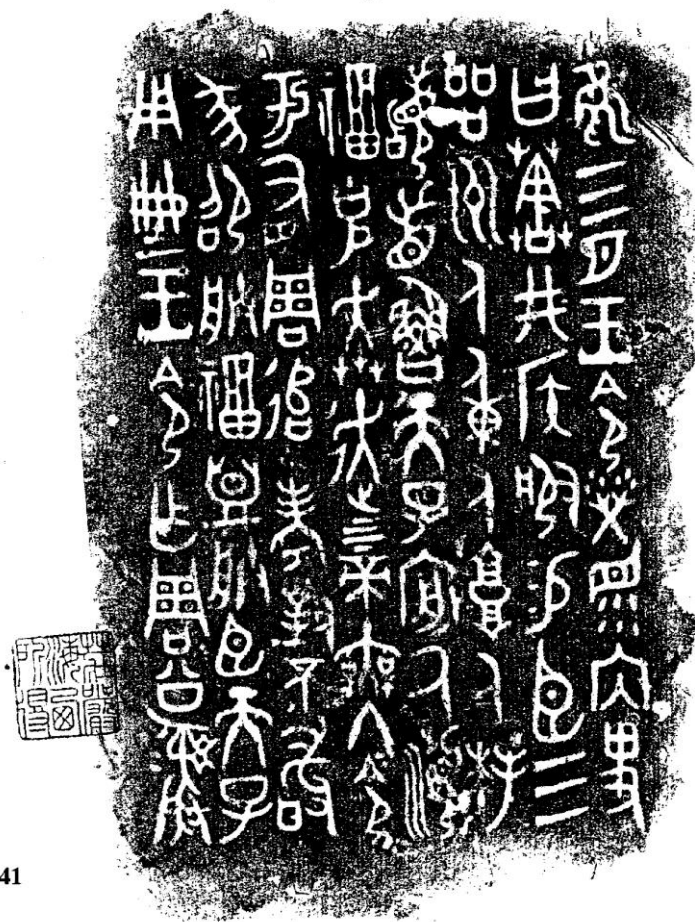 隹三月王令榮眔內史
曰井侯服易臣三
品州人重人𩫏人拜
稽首魯天子厥瀕
福克奔走上下帝無冬令
于有周追考對不敢
㒸卲朕福盟朕臣天子
用典王令乍周公彝
41